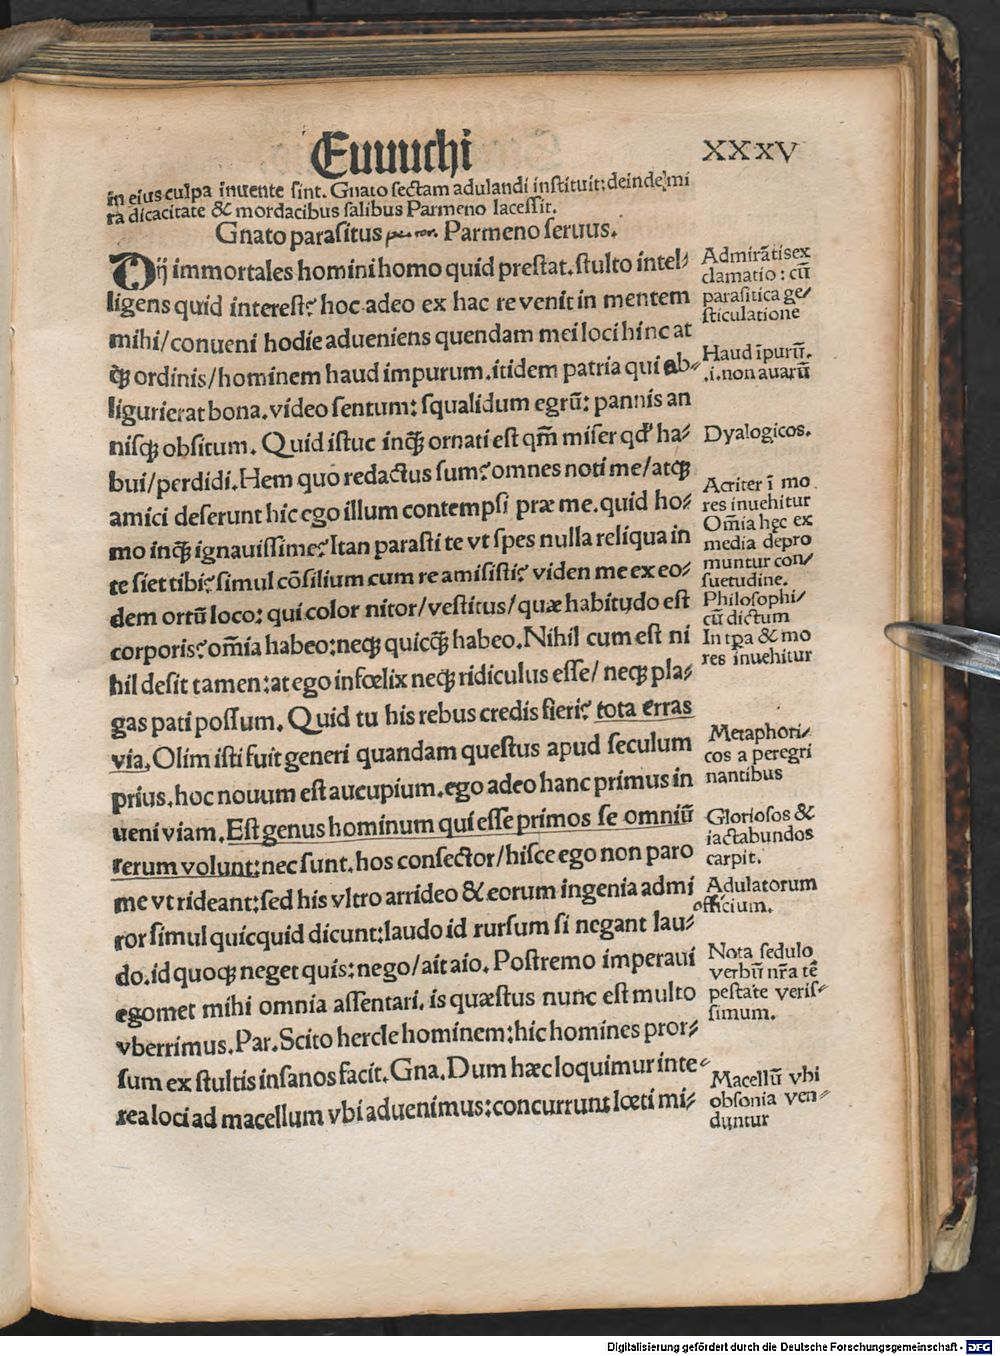 Euuuchi
XXXV
in eius culpa inuente sint. Gnato sectam adulandi instituit: deinde mi
ra dicacitate & mordacibus salibus Parmeno lacessit.
Gnato parasitus Parmeno seruus.
Dij immortales homini homo quid prestat. stulto intel⸗
ligens quid interest? hoc adeo ex hac re venit in mentem
mihi/conueni hodie adueniens quendam mei loci hinc at
q̃ ordinis/hominem haud impurum. itidem patria qui ab⸗
ligurierat bona. video sentum: squalidum egrũ: pannis an
nisq̃ obsitum. Quid istuc inq̃ ornati est qm̃ miser qđ ha⸗
bui/perdidi. Hem quo redactus sum? omnes noti me/atq̃
amici deserunt hic ego illum contempsi præ me. quid ho⸗
mo inq̃ ignauissime? Itan parasti te vt spes nulla reliqua in
te siet tibi? simul cõsilium cum re amisisti? viden me ex eo⸗
dem ortũ loco: qui color nitor/vestitus/quæ habitudo est
corporis? om̃ia habeo: neq̃ quicq̃ habeo. Nihil cum est ni
hil desit tamen: at ego infœlix neq̃ ridiculus esse/ neq̃ pla⸗
gas pati possum. Quid tu his rebus credis fieri? tota erras
via. Olim isti fuit generi quandam questus apud seculum
prius. hoc nouum est aucupium. ego adeo hanc primus in
ueni viam. Est genus hominum qui esse primos se omniũ
rerum volunt: nec sunt. hos consector/hisce ego non paro
me vt rideant: sed his vltro arrideo & eorum ingenia admi
ror simul quicquid dicunt: laudo id rursum si negant lau⸗
do. id quoq̃ neget quis: nego/ait aio. Postremo imperaui
egomet mihi omnia assentari. is quæstus nunc est multo
vberrimus. Par. Scito hercle hominem: hic homines pror⸗
sum ex stultis insanos facit. Gna. Dum hæc loquimur inte⸗
rea loci ad macellum vbi aduenimus: concurrunt lœti mi⸗
Admirãtis ex
clamatio: cũ
parasitica ge⸗
sticulatione
Haud ĩpurũ.
.i. non auarũ
Dyalogicos.
Acriter ĩ mo
res inuehitur
Om̃ia hęc ex
media depro
muntur con⸗
suetudine.
Philosophi⸗
cũ dictum
In tp̃a & mo
res inuehitur
Metaphori⸗
cos a peregri
nantibus
Gloriosos &
iactabundos
carpit.
Adulatorum
officium.
Nota sedulo
verbũ nr̃a tẽ
pestate veris⸗
simum.
Macellũ vbi
obsonia ven⸗
duntur
Digitalisierung gefördert durch die Deutsche Forschungsgemeinschaft - DFG